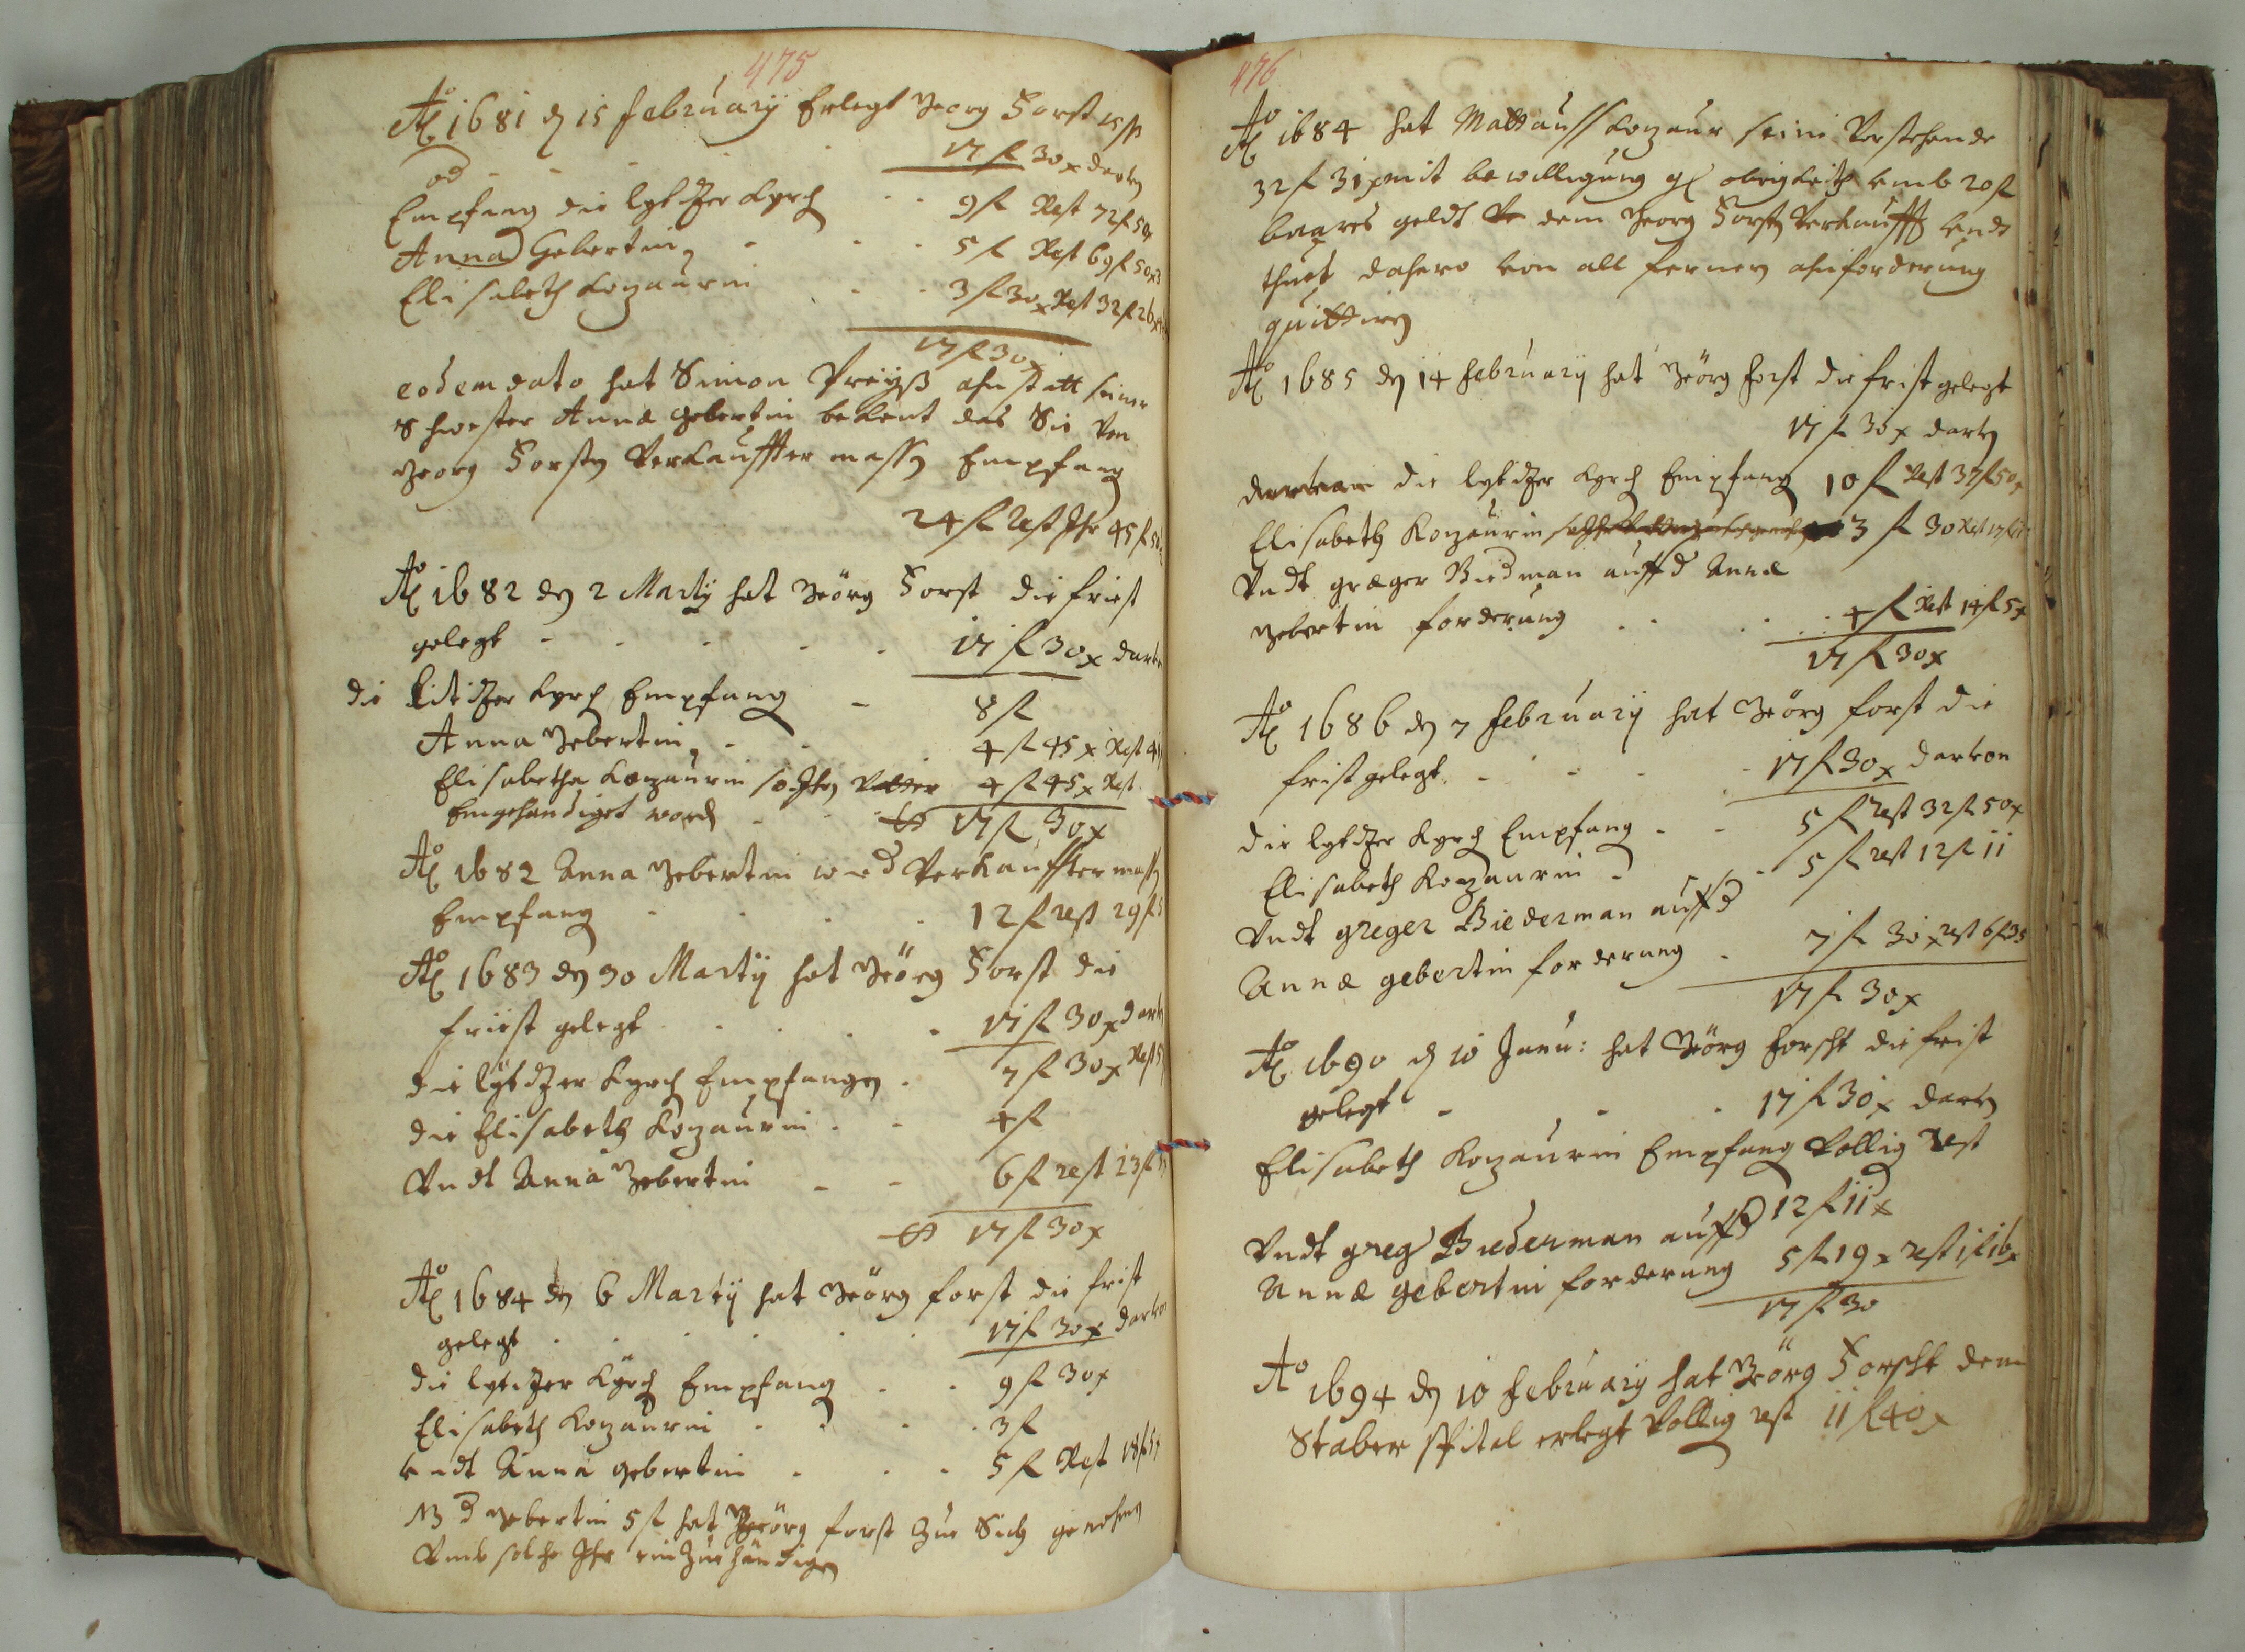 475
Ao 1681 den 15 February Erlegt Georg Forst
17 fl 30 x
Empfang die Kyrch 9 fl Rest 72 fl 50 x
Anna Gebertin 5 fl Rest 69 fl 50 x 3
Elisabeth Kozaurin 3 fl 30 x Rest 32 fl 26 x
17 fl 30 x
eodem dato hat Simon Preyß ahn statt seiner
Schwester Anna Gebertin bekent das Sie Von
Georg Forsten Verkauffter massen Empfang
24 fl Rest Ihr 45 fl
Ao 1682 den 2 Marty hat Jeörg Forst die friest
gelegt 17 fl 30 x
die Kyrch Empfang 8 fl
Anna Gebertin 4 fl 45 x Rest
Elisabetha Kozaurin so Ihren Vatter 4 fl 45 x Rest
Eingehendiget worden 17 fl 30 x
Ao 1682 Anna Gebertin Verkauffter massen
Empfang 12 fl rest 29 fl
Ao 1683 den 30 Martij hat Jeörg Forst die
friest gelegt 17 fl 30 x
die Kyrch Empfangen 7 fl 30 x Rest
die Elisabeth Kozaurin 4 fl
Undt Anna Gebertin 6 fl rest 23 fl
17 fl 30 x
Ao 1684 den 6 Martij hat Jeörg forst die frist
gelegt 17 fl 30 x darvon
die Kyrch Empfang 9 fl 30 x
Elisabeth Kozaurin 3 fl
undt Anna gebertin 5 fl Rest 18 fl
NB d Gebertin 5 fl hat Jeörg forst Zue Sich genohmen
Umb solche Ihr ein Zue händigen
476
Ao 1684 hat Mattauss Kozaur seine Verstehende
32 fl 31 x mit bewilligung obrigkeit umb 20 fl
baares geldt dem Georg Forsten Verkaufft undt
thuet dahero von all ferneren ahnforderung
quittiren
Ao 1685 den 14 February hat Jeörg forst die frist gelegt
17 fl 30 x
die Kyrch Empfang 10 fl Rest 37 fl 50 x
Elisabeth Kozaurin 3 fl 30 Rest
Undt greger Biedman auff d Anna
Gebertin forderung 4 fl Rest 14 fl 5 x
17 fl 30 x
Ao 1686 den 7 February hat Jeörg forst die
frist gelegt 17 fl 30 x darvon
die Kyrch Empfang 5 fl rest 32 fl 50 x
Elisabeth Kozaurin 5 fl rest 12 fl 11
Undt greger Biederman auff d
Anna gebertin forderung 7 fl 30 x rest 6 fl 35
17 fl 30 x
Ao 1690 den 10 Janu: hat Jeörg forscht die frist
gelegt 17 fl 30 x
Elisabeth Kozaurin Empfang Vollig Rest
12 fl 11 x
Undt greg Biederman auff d
Anna gebertin forderung 5 fl 19 x rest 1 fl 16 x
17 fl 30
Ao 1694 den 10 February hat Jeörg Forscht dem
Staber spital erlegt Vollig rest 11 fl 40 x